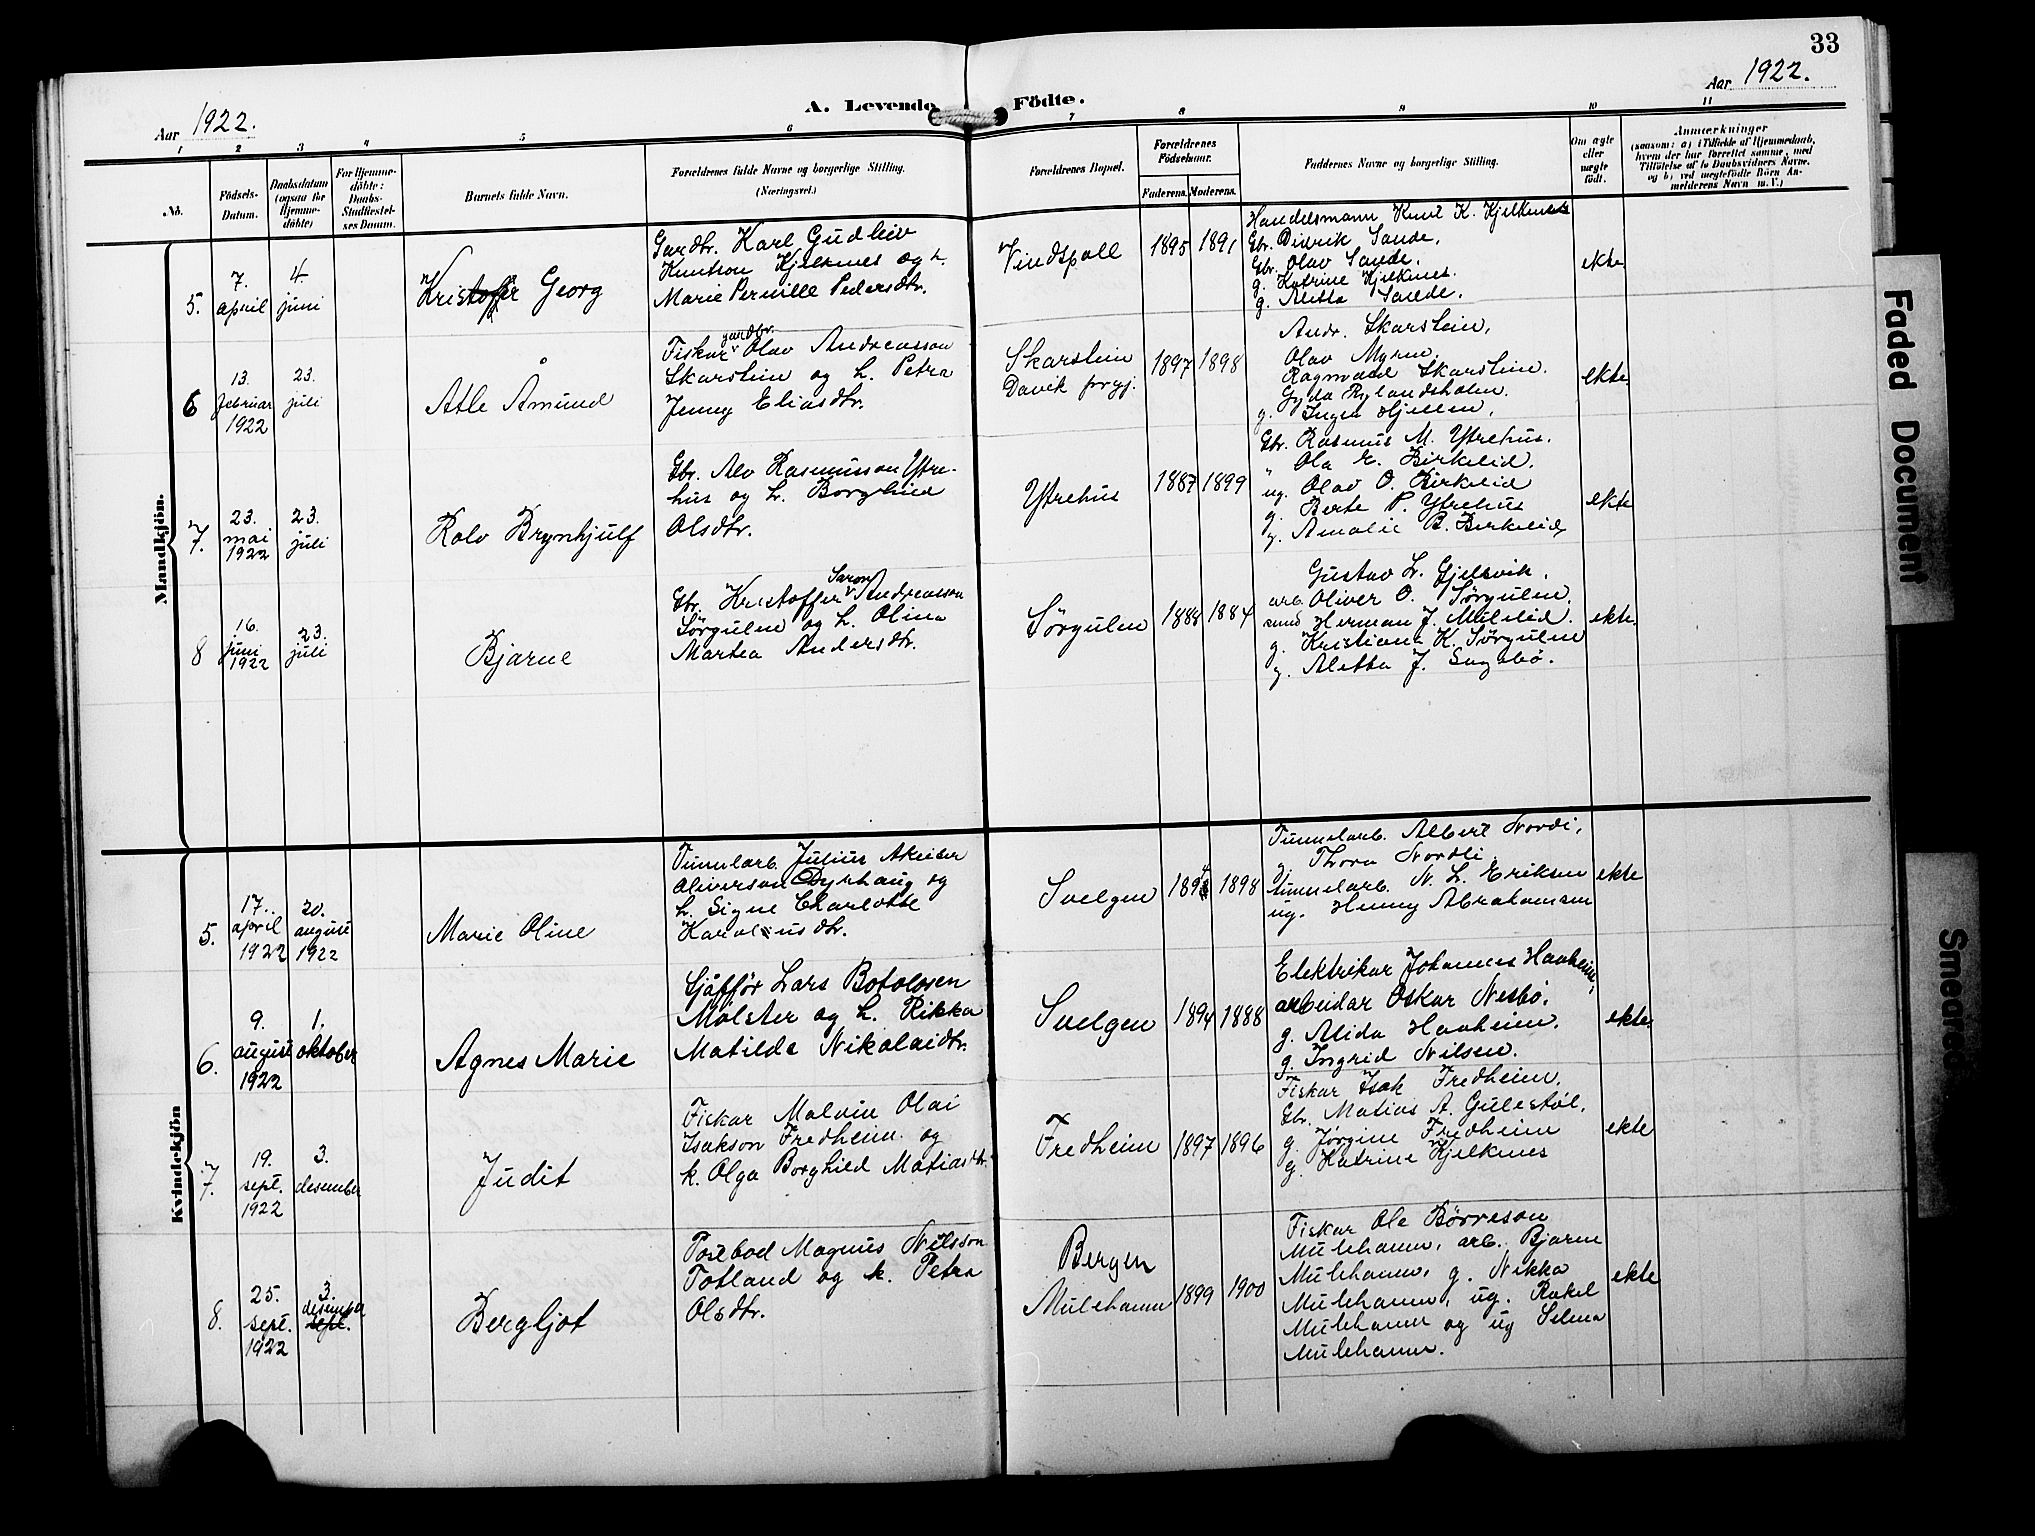 33
Aar 1922.
A. Levende Födte.
Aar 1922.
1 2 3 4 5 6 7 8 9 10 11
No.
Födsels-
Datum.
Daabsdatum
(ogsaa for
Hjemme-
döbte)
For Hjemme-
döbte:
Daabs-
Stadfæstel-
ses Datum.
Barnets fulde Navn.
Forældrenes fulde Navne og borgerlige Stilling.
(Næringsvei.)
Forældrenes Bopæl.
Forældrenes
Födselsaar.
Faderens. Moderens.
Faddernes Navne og borgerlige Stilling.
Om ægte
eller
uægte
født.
Anmærkninger
(saasom: a) i Tilfælde af Hjemmedaab,
hvem der har forrettet samme, med
Tilföielse af to Daabsvidners Navne,
og b) ved uægtefödte Börn An-
melderens Navn m. V.)
Mandkjön.
5.
7.
april
4.
juni
Kristoffer Georg
Gardbr. Karl Gudleiv
Knutson Hjelknes og h.
Marie Pernille Pedersdtr.
Vindspoll
1895 1891
Handelsmann Knut K. Hjelknes
Gbr. Didrik Sande,
Gbr. Olav Sande,
g. Katrine Hjelknes.
g. Aletta Sande.
ekte
6
13.
februar
1922
23.
juli
Atle Åmund
gardbr.
Fiskar Olav Andreasson
Skarstein og h. Petra
Jenny Eliasdtr.
Skarstein
Davik prgj.
1897 1898
Andr. Skarstein,
Olav Myren,
Ragnvald Skarstein.
Gyda Rylandsholm.
g. Inga Hjellen,
ekte
7.
23.
mai
1922
23.
juli
Rolv Brynhjulf
Gbr. Alv Rasmusson Ytre-
hus og h. Borghild
Olsdtr.
Ytrehus
1887 1899
Gbr. Rasmus M. Ytrehus.
" Ola E. Birkeleid,
ug. Olav O. Birkeleid
g. Berte P. Ytrehus
g. Amalie B. Birkeleid,
ekte
8
16.
juni
1922
23.
juli
Bjarne
Saron
Gbr. Kristoffer Andreasson
Sørgulen og h. Olina
Martea Andersdtr.
Sørgulen
1888 1884
Gustav L. Gjelsvik,
arb. Oliver O. Sørgulen,
smed Herman J. Myklid.
g. Kristiane K. Sørgulen
g. Aletta J. Sagebø.
ekte.
Kvindekjön
5.
17.
april
1922
20.
august
1922
Marie Oline
Tunnelarb. Julius Akeider
Oliverson Dyrhaug og
h. Signe Charlotte
Karoliusdtr.
Svelgen
1898
Tunnelarb. Albert Nordli,
g. Thora Nordli,
tunnelarb. N. L. Erikson
ug. Henny Abrahamsen
ekte
6.
9.
august
1922
1.
oktober
Agnes Marie
Sjåffør Lars Botolvsen
Mølster og h. Rikka
Matilde Nikolaidtr.
Svelgen
1894 1888
Elektrikar Johannes Havheim,
arbeidar Oskar Nesbø.
g. Alida Havheim.
g. Ingrid Nilsen.
ekte.
7.
19.
sept.
1922
3.
desember
Judit
Fiskar Malvin Olai
Isakson Fredheim og
k. Olga Borghild Matiasdtr.
Fredheim
1897 1896
Fiskar Isak Fredheim,
Gbr. Matias A. Gulestøl,
g. Jørgine Fredheim
g. Katrine Hjelknes
ekte
8.
25.
sept.
1922
3.
desember
sept.
Bergljot
Postbod Magnus Nilsson
Totland og k. Petra
Olsdtr.
Bergen
Mulehamn
1899 1900
Fiskar Ole Børreson
Mulehamn, arb. Bjarne
Mulehamn, g. Nikka
Mulehamn, ug. Rakel
Mulehamn og ug Selma
Mulehamn.
ekte
Faded Document
Smeared